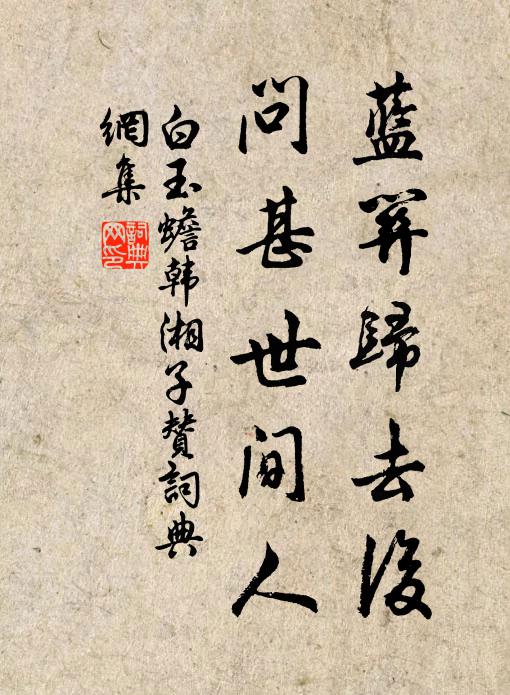 藍關歸去後
問甚世間人
白玉蟾韩湘子贊詞典
網集
詞典
网印